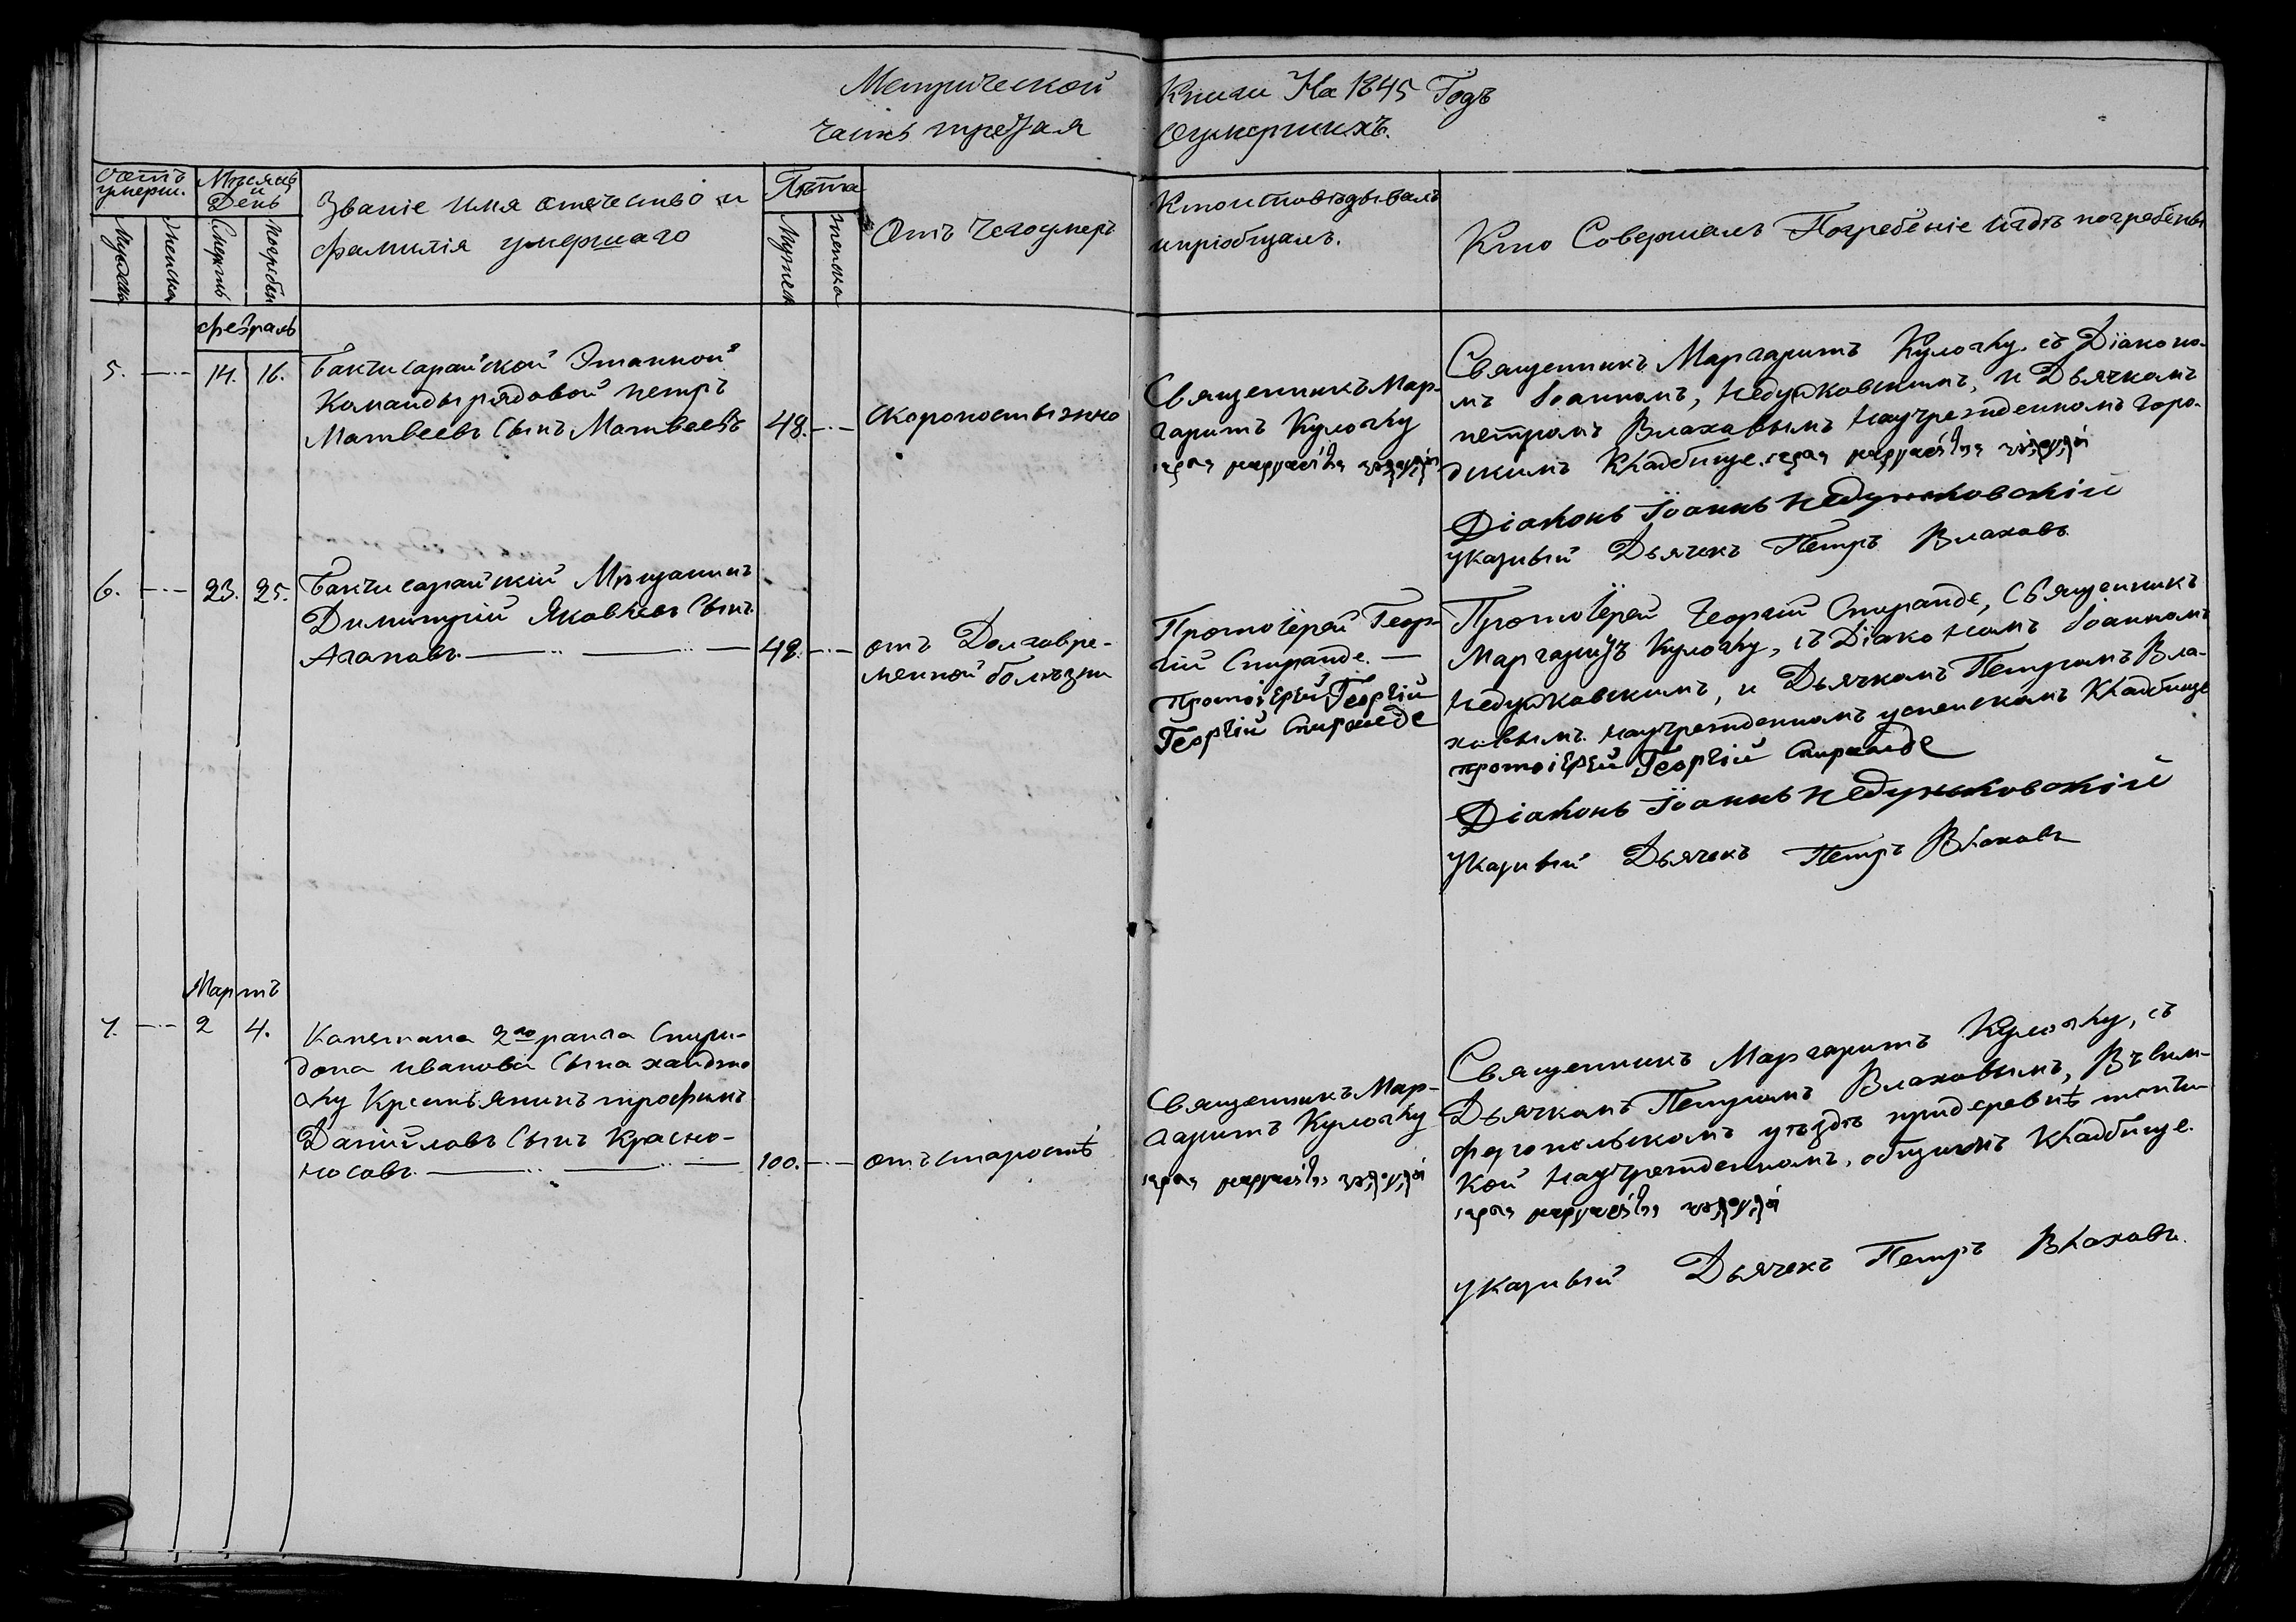 Метрической Книги На 1845 Годъ
часть третая Оумершихъ.
Счетъ умерш.
Мѣсяцъ и День
Званіе имя отечество и
фамилія умершаго
Лѣта
Отъ Чего умеръ
Кто исповѣдывалъ
и пріобщалъ.
Кто Совершалъ Погребеніе и гдѣ погребены
Мужеска
Женска
Смерть
Погребен
Мужеск
женска
февраль
5.
14. 16.
Бакчисарайской Этапной
Команды рядовой петръ
Матвеевъ Сынъ Матвеевъ
48.
скоропостыжно
Священникъ Мар-
гаритъ Кулочку
Священникъ Маргаритъ Кулочку. съ Діяконо-
мъ Іоанномъ, Недужковскимъ, и Дьячкомъ
петромъ Влаховымъ научрежденномъ горо-
дскимъ Кладбище.
Діаконъ Іоаннъ Недужковскій
указный Дьячекъ Петръ Влаховъ
6.
23. 25.
Бакчисарайскій Мѣщанинъ
Димитрій Яковлевъ Сынъ
Агаповъ.
48.
отъ Долговре-
менной болѣзни
Протоіерей Геор-
гій Спиранде.
протоіерей Георгій
Георгій Спиранде
Протоіерей Георгій Спиранде, Священникъ
Маргаритъ Кулочку, съ Діякономъ Іоанномъ
Недужковскимъ, и Дьячкомъ Петромъ Вла-
ховымъ научрежденномъ успенскомъ Кладбище
протоіерей Георгій Спиранде
Діаконъ Іоаннъ Недужковскій
Указный Дьячекъ Петръ Влаховъ
Мартъ
7.
2 4.
Капетана 2го ранга Спири-
дона иванова Сына ханджо
гку Крестьянинъ трофимъ
Даніиловъ Сынъ Красно-
носовъ.
100.
отъ старостѣ
Священникъ Мар-
гаритъ Кулочку
Священникъ Маргаритъ Кулочку, съ
Дьячкомъ Петромъ Влаховымъ, Въ Сим-
феропольскомъ уѣздѣ придеревнѣ
кой научрежденномъ, общимъ Кладбище.
указный Дьячекъ Петръ Влаховъ.